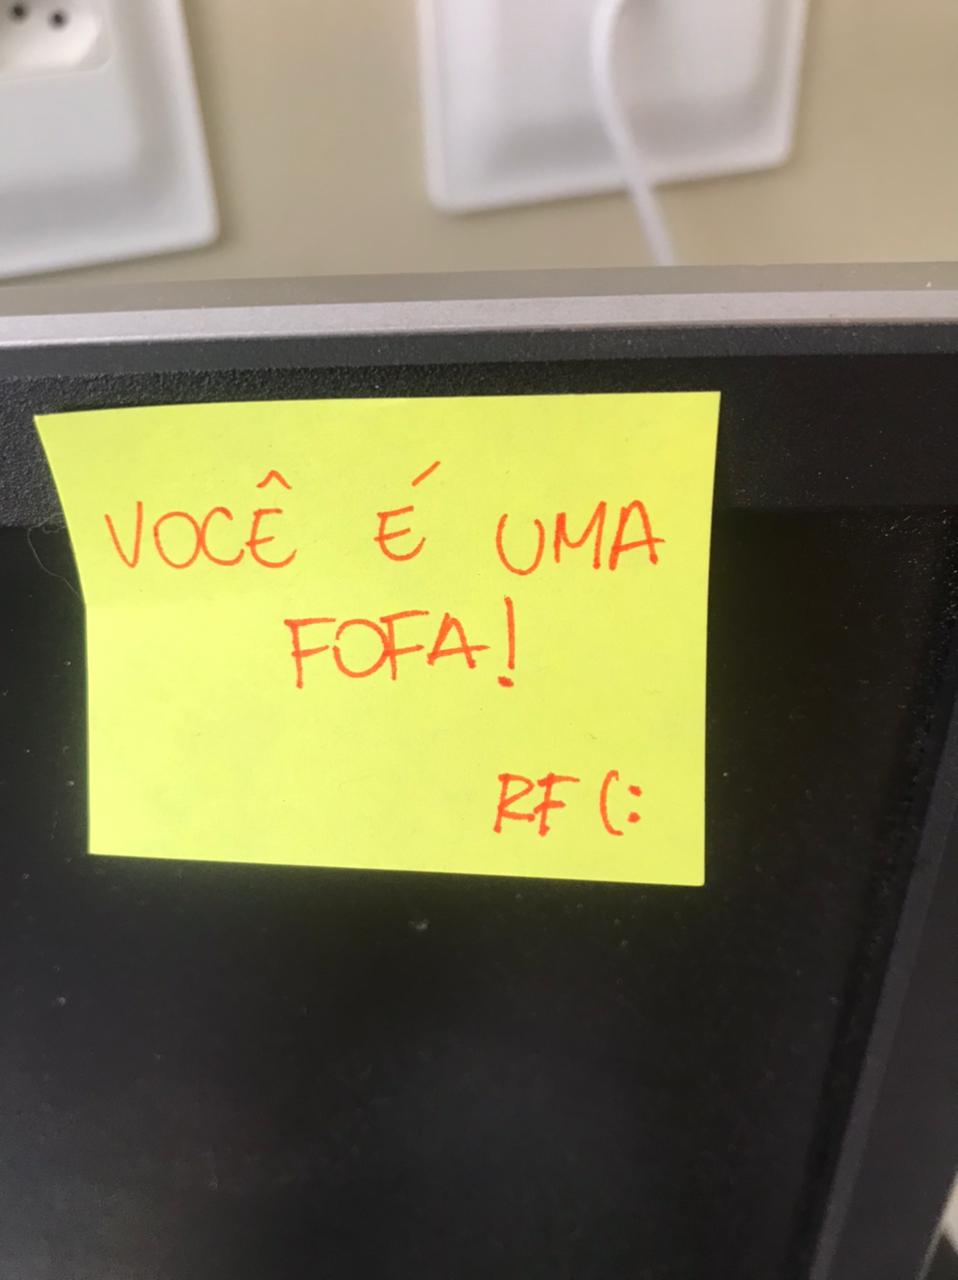 VOCÊ É UMA
FOFA!
RF (: